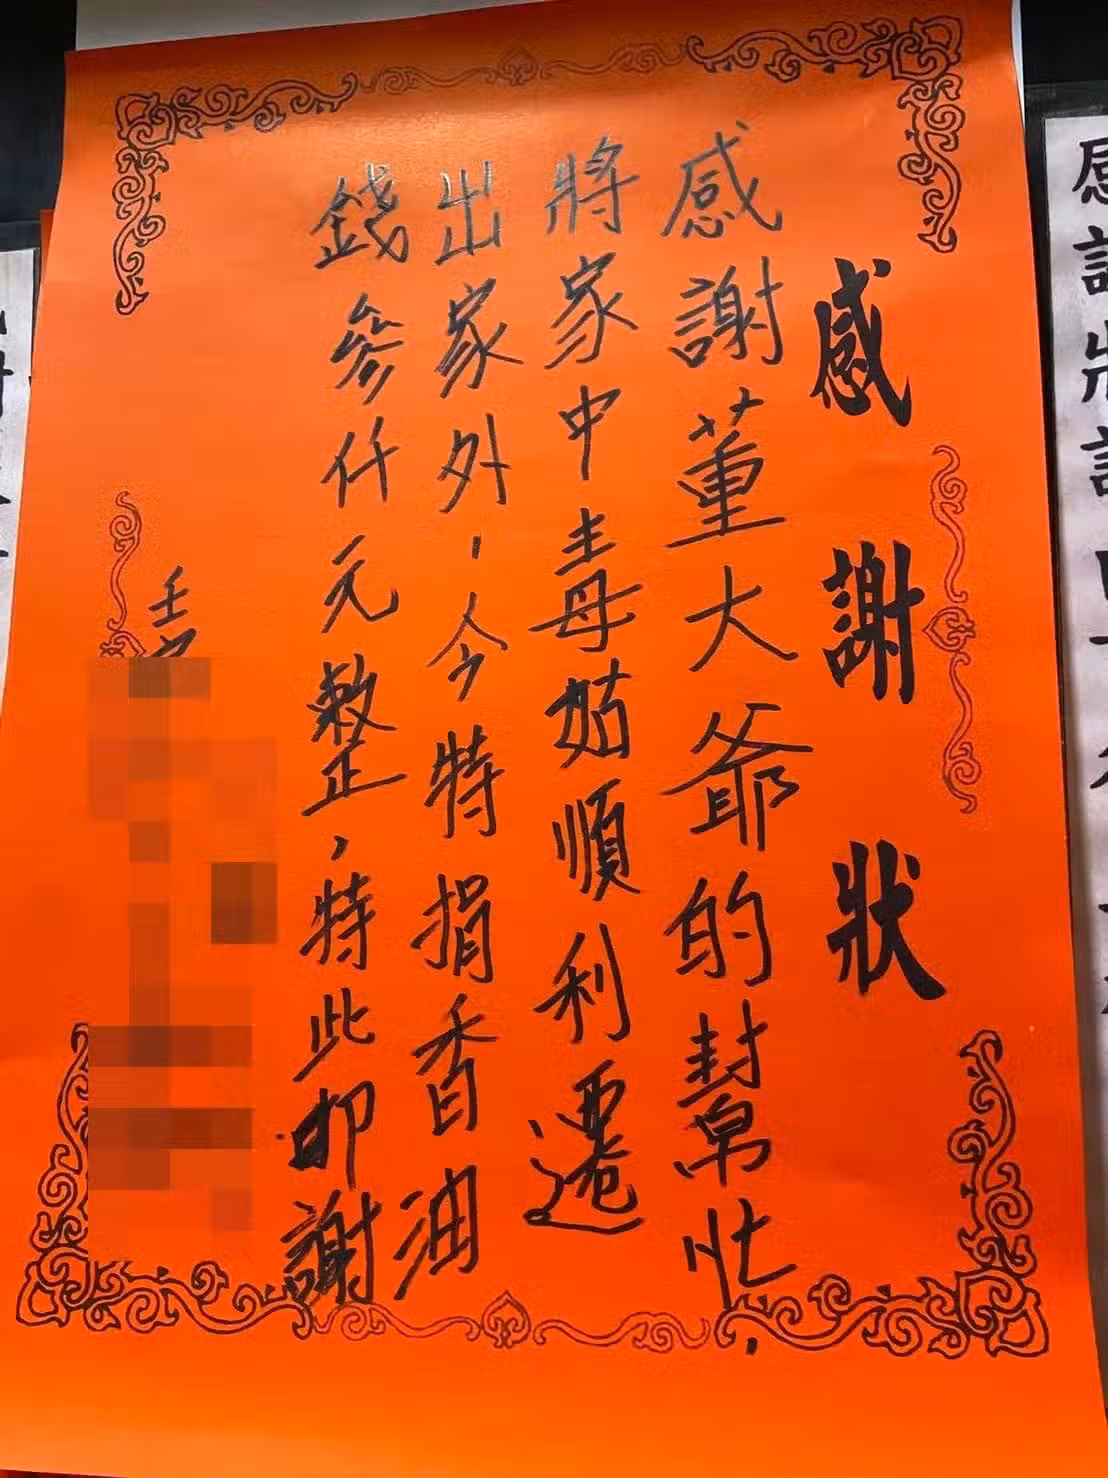 感謝狀
感謝董大爺的幫忙,
將家中毒姑順利遷
出家外,今特捐香油
錢參仟元整,特此叩謝
壬